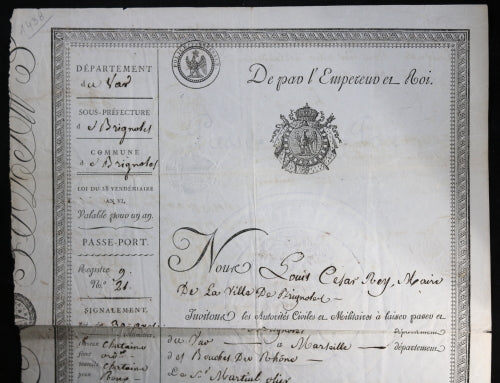 1438
DÉPARTEMENT
du Var
SOUS-PRÉFECTURE
d Brignoles
COMMUNE
d Brignoles
LOI DU 28 VENDÉMIAIRE
AN VI.
Valable pour un an.
PASSE-PORT.
Registre 9.
N.º 21.
SIGNALEMENT.
Chataine
front
sourcils Chataine
yeux
De par l'Empereur et Roi.
Nous Louis Cesar Rey, Maire
De La Ville De Brignoles
Invitons les Autorités Civiles et Militaires à laisser passer et
département
du Var à Marseille département
des Bouches Du Rhône
Le Sr Martial